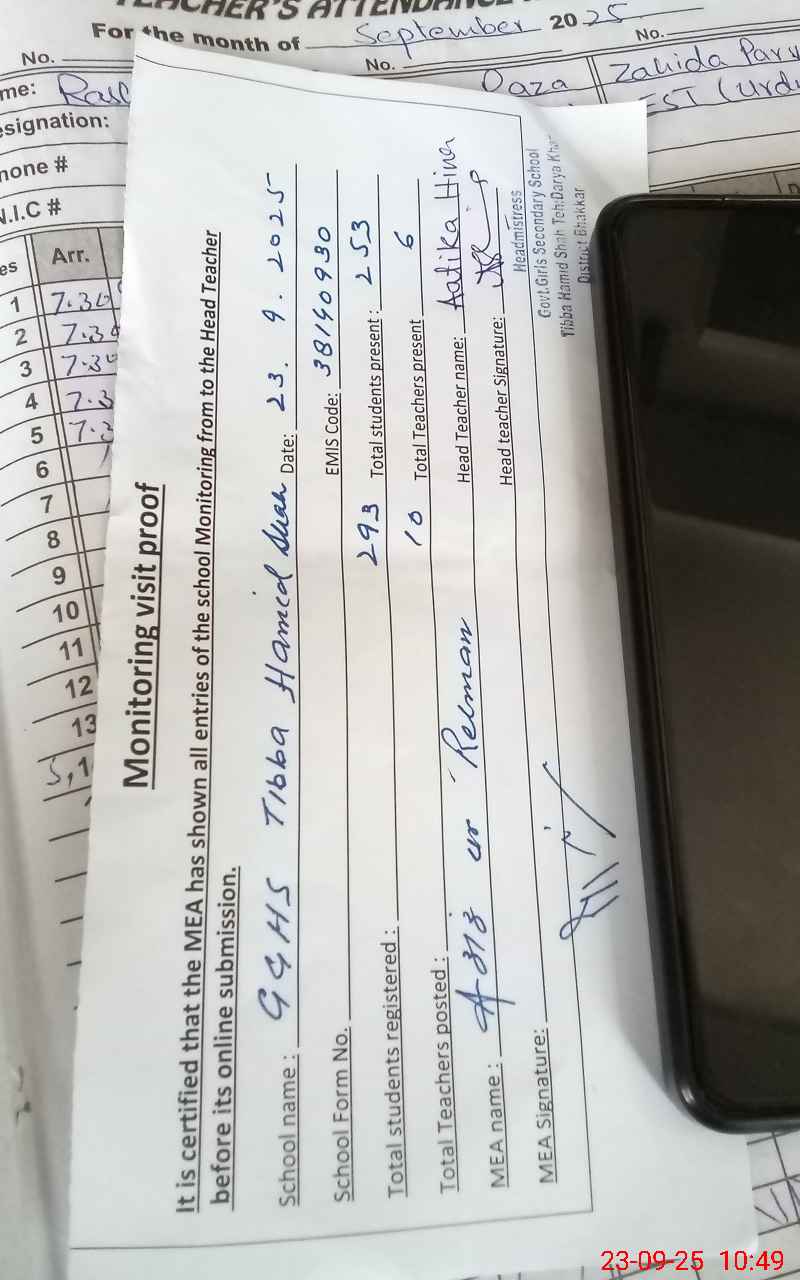 TEACHER'S ATTENDANCE
For the month of September 2025
No. No. No.
me: Daza Zahida Parv
esignation: EST (Urdu
hone #
N.I.C #
es Arr.
1 7.30
2 7.30
3 7.30
4 7.3
5 7.3
6
7
8
9
10
11
12
13
Monitoring visit proof
It is certified that the MEA has shown all entries of the school Monitoring from to the Head Teacher
before its online submission.
School name : GGHS Tibba Hamid Shah Date: 23. 9. 2025
School Form No. EMIS Code: 38140930
Total students registered : 293 Total students present : 253
Total Teachers posted : 10 Total Teachers present 6
MEA name : Aziz ur Rehman Head Teacher name: Aatika Hina
MEA Signature: Head teacher Signature:
Headmistress
Govt.Girls Secondary School
Tibba Hamid Shah Teh:Darya Khan
District Bhakkar
23-09-25 10:49